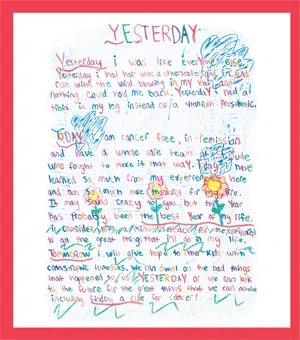 YESTERDAY
Yesterday i was like everyone else.
Yesterday i had hair was a cheerleader and i could
run with the wind blowing in my hair and
nothing could hold me back. Yesterday i had a
tibia in my leg instead of a titanium prosthetic.
TODAY i am cancer free, in remission
and have a whole care team at
who fought to make it that way. I
learned so much from my experience here
and am so much more thankful for my life.
It may sound crazy to you but this year
has probably been the best year of my life.
i consider this a minor setback for me compared
to all the great things that i'll do in my life.
TOMORROW i will give hope to other kids with
catastrophic illnesses. we can dwell on the bad things
that happened to us YESTERDAY or we can look
to the future for the great things that we can
including finding a cure for cancer!